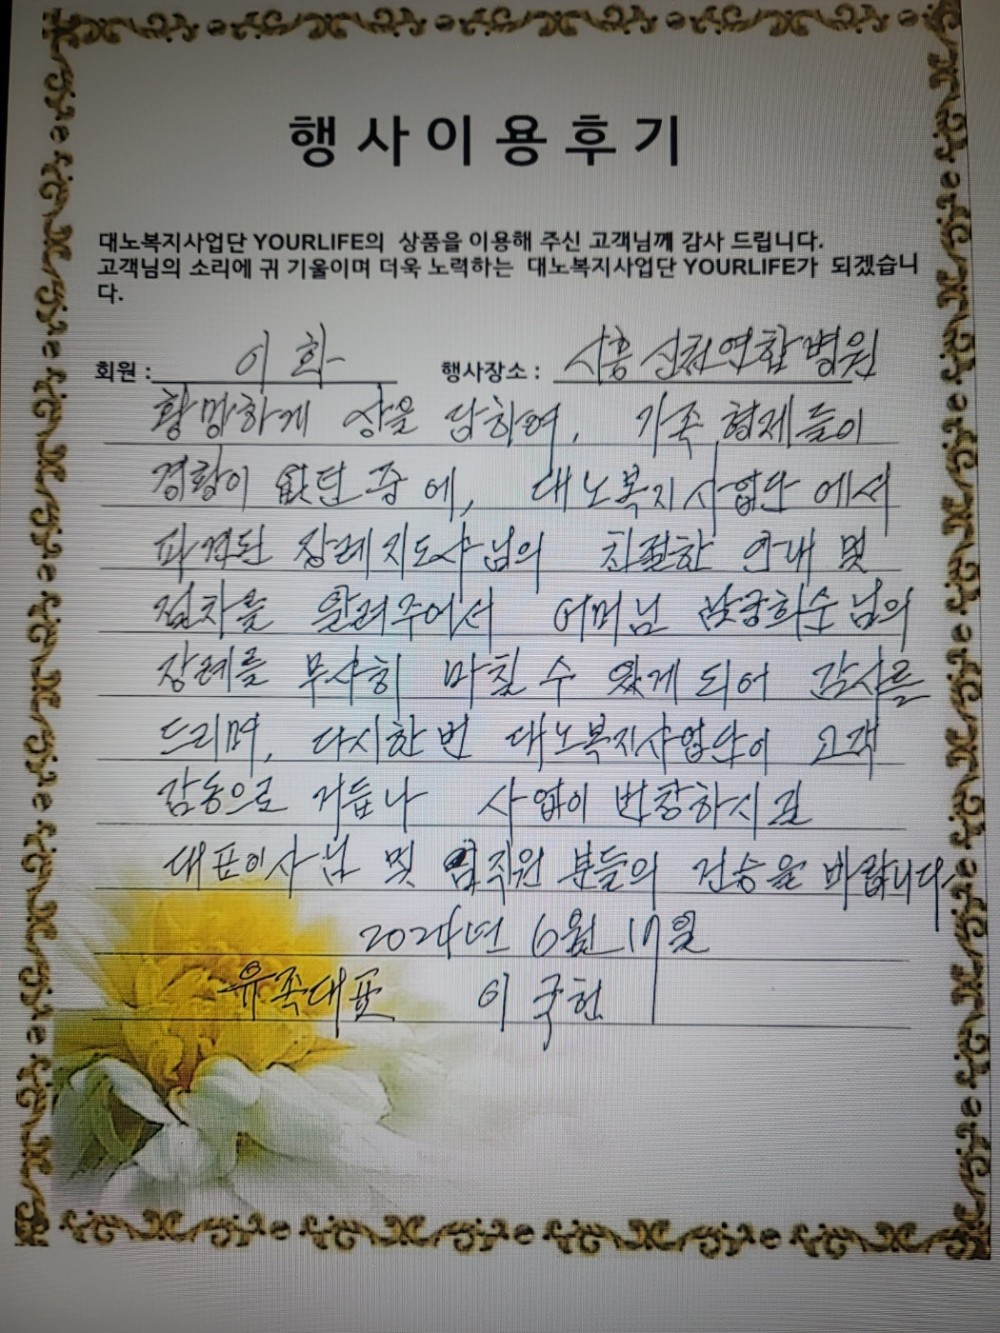 행사이용후기
대노복지사업단 YOURLIFE의 상품을 이용해 주신 고객님께 감사 드립니다.
고객님의 소리에 귀 기울이며 더욱 노력하는 대노복지사업단 YOURLIFE가 되겠습니
다.
회원 : 이 화 행사장소 : 시흥 신천연합병원
황망하게 상을 당하여, 가족 형제들이
경황이 없던 중에, 대노복지사업단에서
파견된 장례지도사님의 친절한 안내 및
절차를 알려주어서 어머님 님의
장례를 무사히 마칠 수 있게 되어 감사를
드리며, 다시한번 대노복지사업단이 고객
감동으로 거듭나 사업이 번창하시길
대표이사님 및 임직원 분들의 건승을 바랍니다.
2024년 6월 17일
유족대표 이국헌